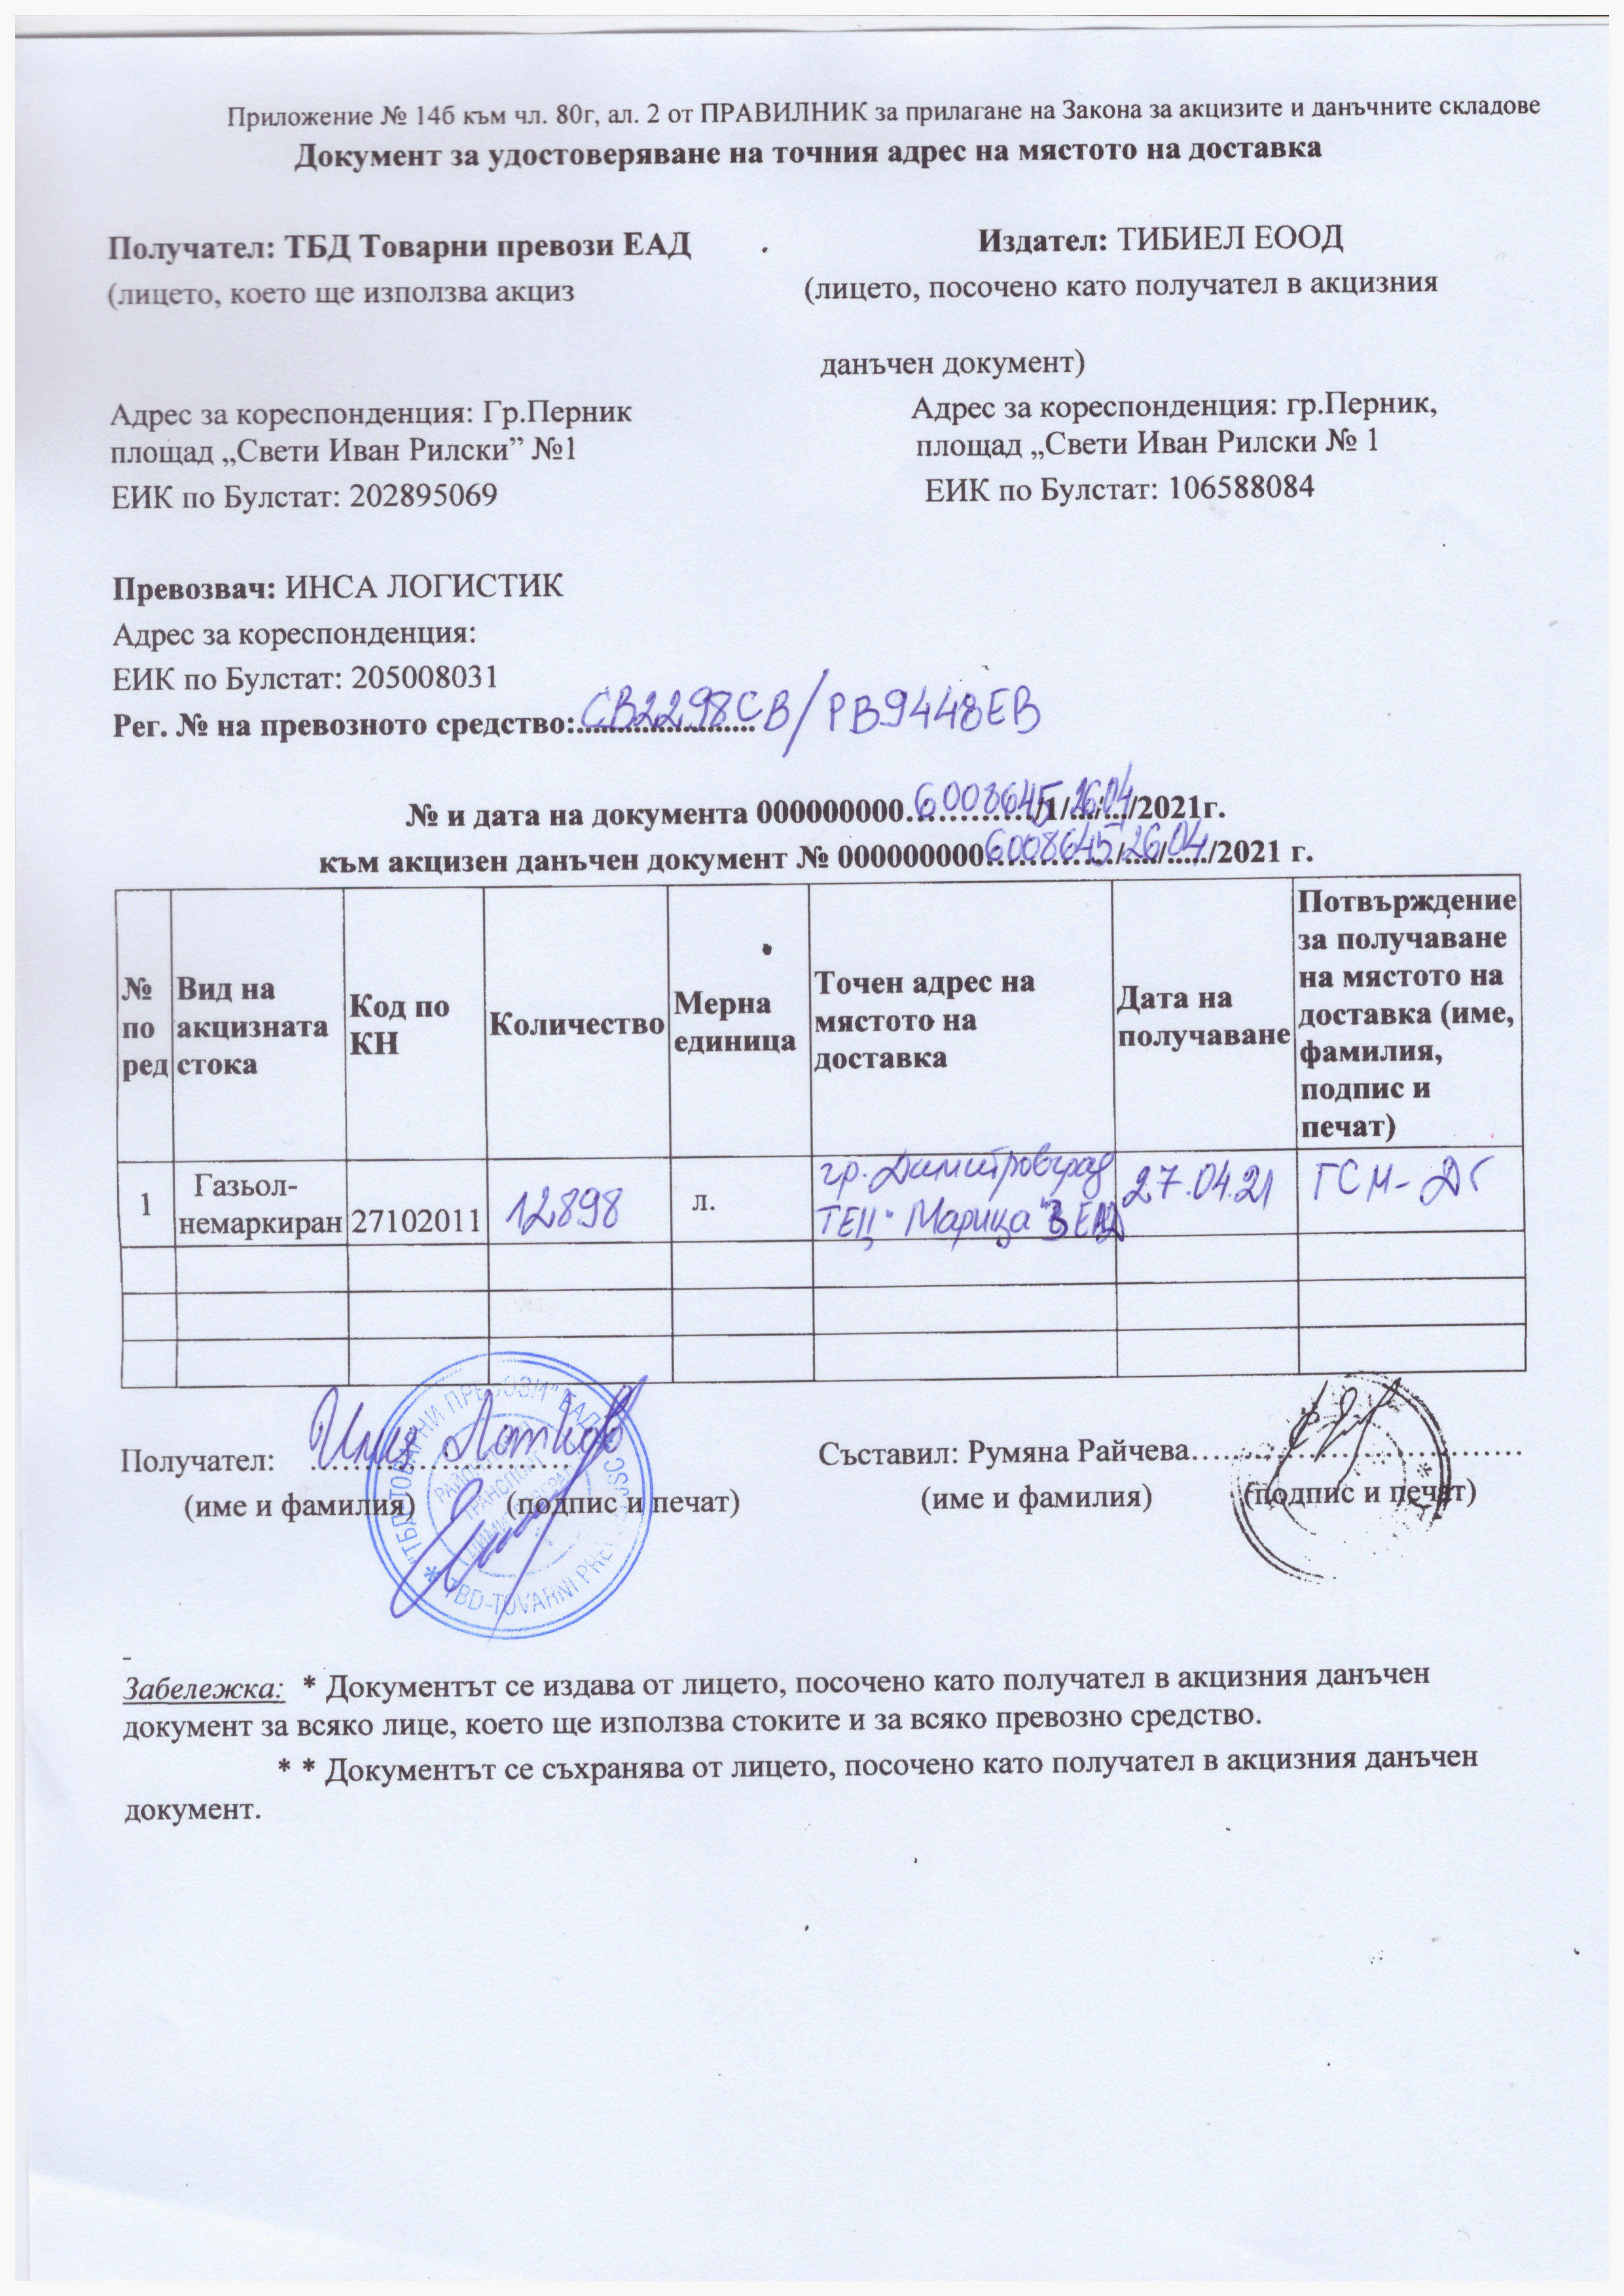 Приложение № 14б към чл. 80г, ал. 2 от ПРАВИЛНИК за прилагане на Закона за акцизите и данъчните складове
Документ за удостоверяване на точния адрес на мястото на доставка
Получател: ТБД Товарни превози ЕАД
(лицето, което ще използва акциз
Издател: ТИБИЕЛ ЕООД
(лицето, посочено като получател в акцизния
данъчен документ)
Адрес за кореспонденция: Гр.Перник
площад „Свети Иван Рилски” №1
ЕИК по Булстат: 202895069
Адрес за кореспонденция: гр.Перник,
площад „Свети Иван Рилски № 1
ЕИК по Булстат: 106588084
Превозвач: ИНСА ЛОГИСТИК
Адрес за кореспонденция:
ЕИК по Булстат: 205008031
Рег. № на превозното средство: СВ2298СВ/РВ9448ЕВ
№ и дата на документа 000000000 6008645/1/26/04/2021г.
към акцизен данъчен документ № 000000000 6008645/26/04/2021 г.
№ по ред
Вид на акцизната стока
Код по КН
Количество
Мерна единица
Точен адрес на мястото на доставка
Дата на получаване
Потвърждение за получаване на мястото на доставка (име, фамилия, подпис и печат)
1 Газьол-немаркиран 27102011 12898 л. гр. Димитровград ТЕЦ "Марица 3" ЕАД 27.04.21 ГСМ-ДГ
Получател: Илия
(име и фамилия) (подпис и печат)
Съставил: Румяна Райчева
(име и фамилия) (подпис и печат)
"ТБД ТОВАРНИ ПРЕВОЗИ" ЕАД
TBD-TOVARNI
Забележка: * Документът се издава от лицето, посочено като получател в акцизния данъчен
документ за всяко лице, което ще използва стоките и за всяко превозно средство.
* * Документът се съхранява от лицето, посочено като получател в акцизния данъчен
документ.